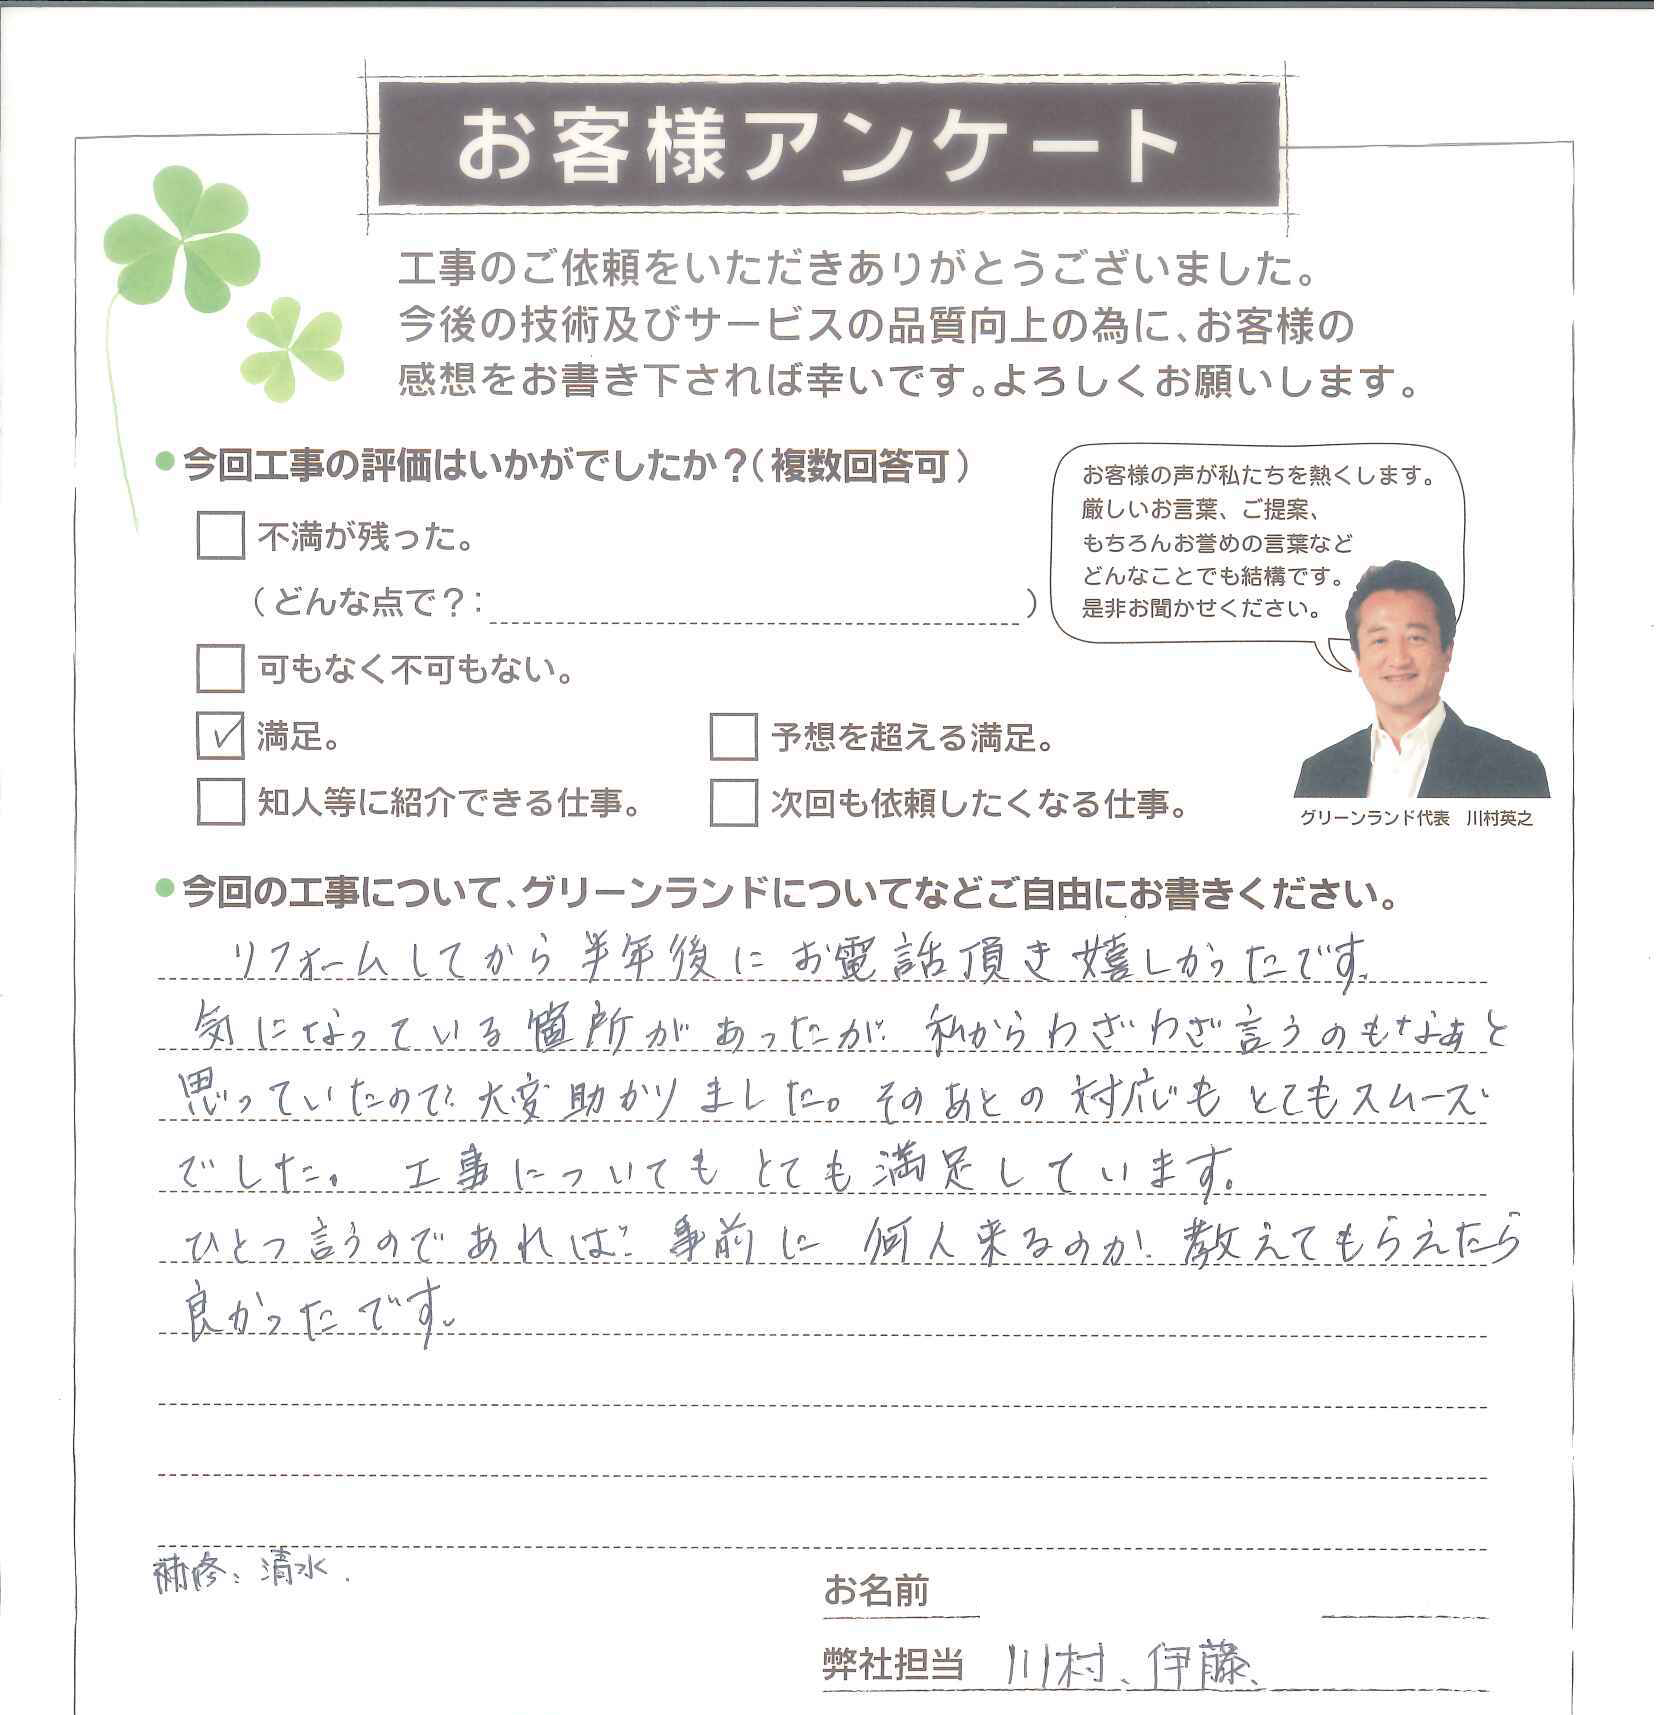 お客様アンケート
工事のご依頼をいただきありがとうございました。
今後の技術及びサービスの品質向上の為に、お客様の
感想をお書き下されば幸いです。よろしくお願いします。
●今回工事の評価はいかがでしたか？（複数回答可）
不満が残った。
（どんな点で？：　　　　　）
可もなく不可もない。
✓ 満足。
予想を超える満足。
知人等に紹介できる仕事。
次回も依頼したくなる仕事。
お客様の声が私たちを熱くします。
厳しいお言葉、ご提案、
もちろんお誉めの言葉など
どんなことでも結構です。
是非お聞かせください。
グリーンランド代表　川村英之
●今回の工事について、グリーンランドについてなどご自由にお書きください。
リフォームしてから半年後にお電話頂き嬉しかったです。
気になっている箇所があったが、私からわざわざ言うのもなぁと
思っていたので、大変助かりました。そのあとの対応もとてもスムーズ
でした。工事についてもとても満足しています。
ひとつ言うのであれば、事前に何人来るのか、教えてもらえたら
良かったです。
補修：清水．
お名前
弊社担当　川村、伊藤、